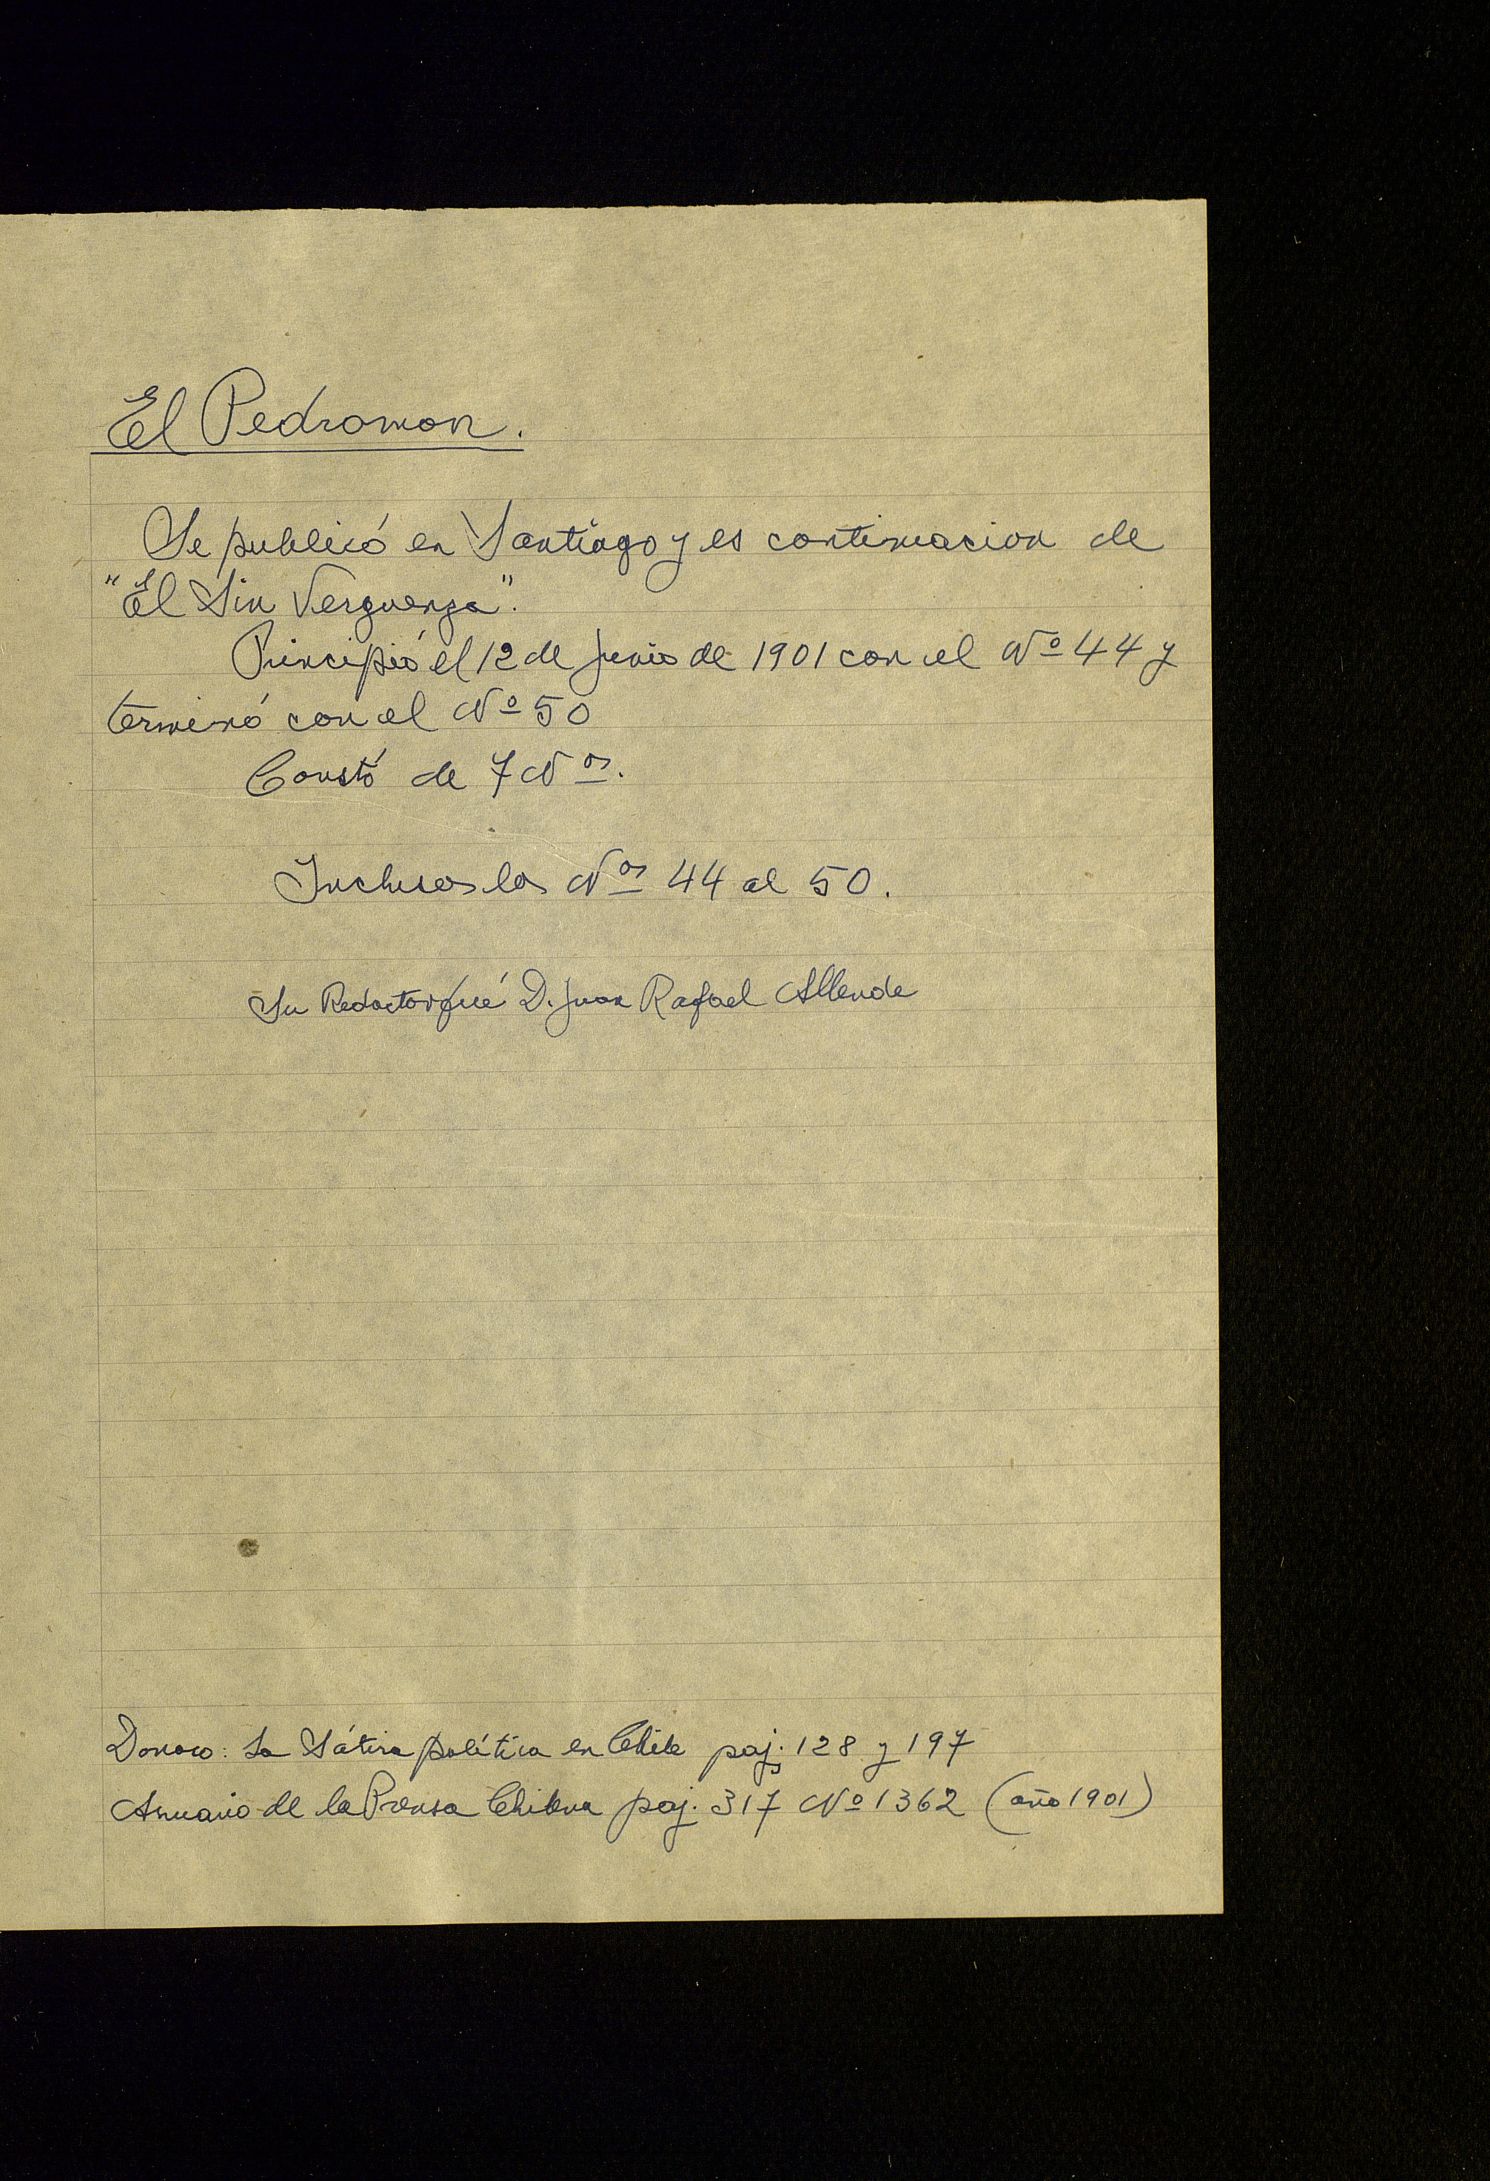 El Pedromon.
Se publicó en Santiago y es continuacion de
"El Sin Verguenza".
Principió el 12 de Junio de 1901 con el Nº 44 y
terminó con el Nº 50
Constó de 7 Nos.
Inclusos los Nos 44 al 50.
Su Redactor fué D. Juan Rafael Allende
Donoso: La Sátira política en Chile paj. 128 y 197
Anuario de la Prensa Chilena paj. 317 Nº 1362 (año 1901)